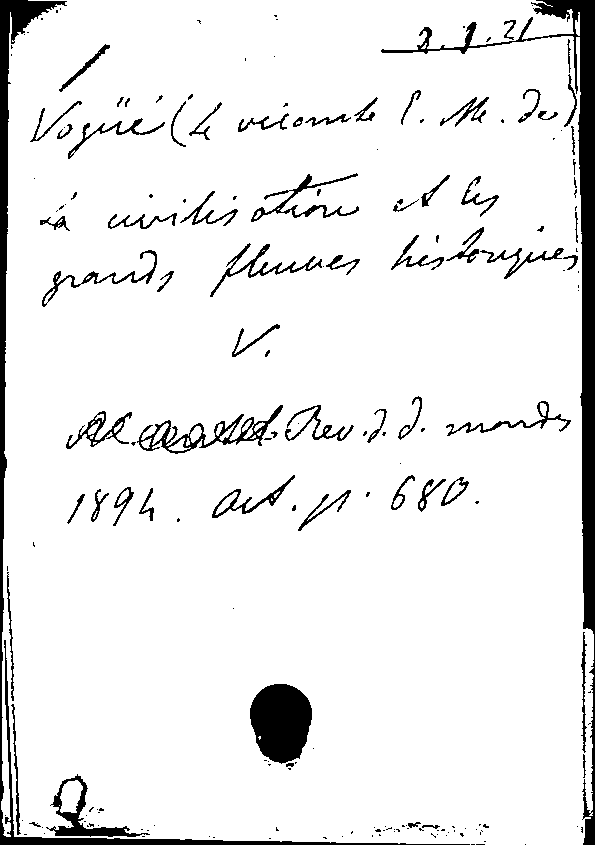 8.1.21
Vogüé (Le vicomte E. M. de)
La civilisation et les
grands fleuves historiques
V.
Rev. d. d. mondes
1894. Oct. p. 680.